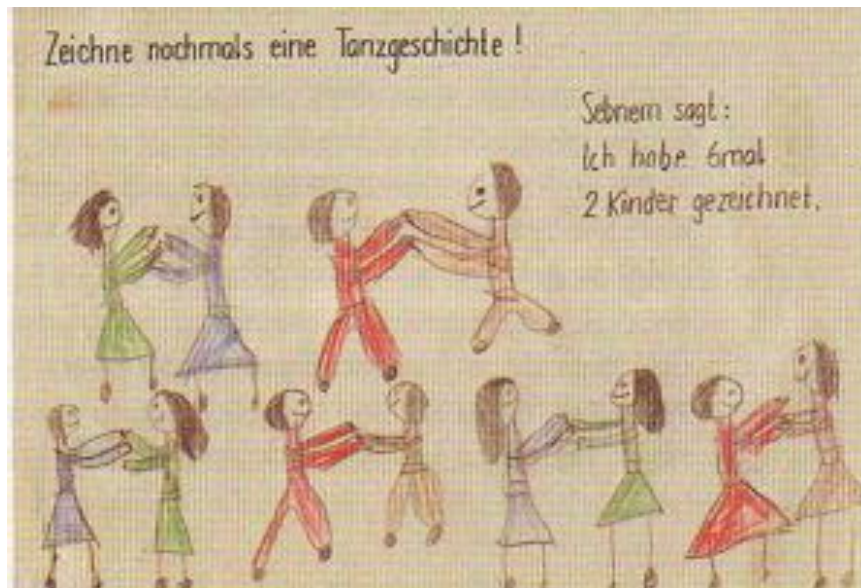 Zeichne nochmals eine Tanzgeschichte !
Sebnem sagt :
Ich habe 6mal
2 Kinder gezeichnet.